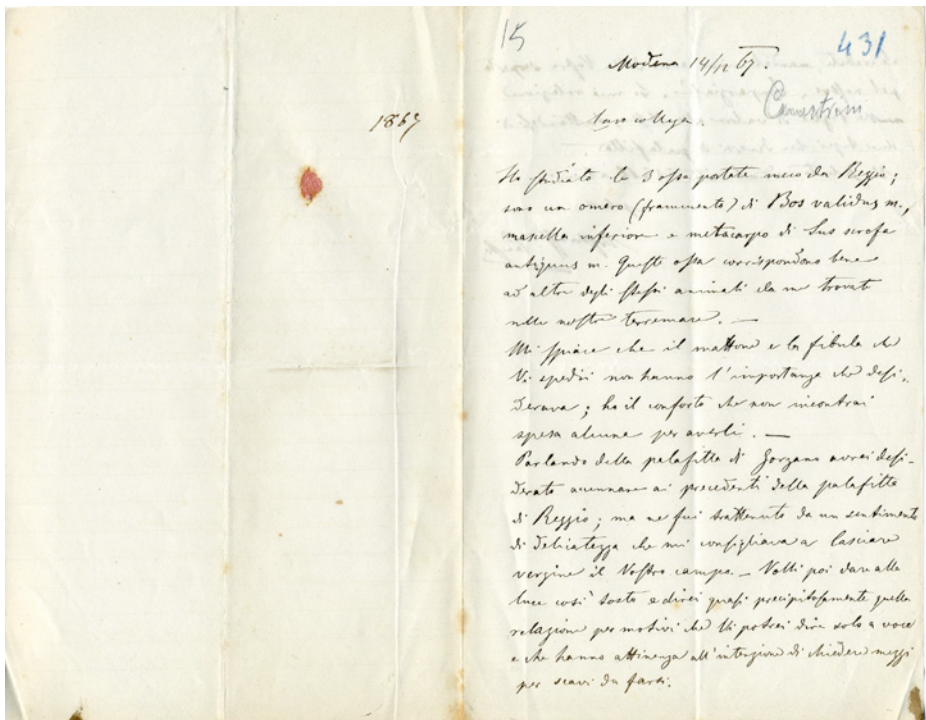 1867
15
431
Modena 14/12 67.
Canestrini
Caro collega.
Ho studiato le 3 ossa portate meco da Reggio;
sono un omero (frammento) di Bos validus m.,
mascella inferiore e metacarpo di Sus scrofa
antiquus m. Queste ossa corrispondono bene
ad altre degli stessi animali da me trovate
nelle nostre terremare. —
Mi spiace che il mattone e la fibula che
Vi spedii non hanno l'importanza che desi-
derava; ho il conforto che non incontrai
spesa alcuna per averli. —
Parlando della palafitta di Gorzano avrei desi-
derato accennare ai precedenti della palafitta
di Reggio; ma ne fui trattenuto da un sentimento
di delicatezza che mi consigliava a lasciare
vergine il Vostro campo. — Volli poi dare alla
luce così tosto e direi quasi precipitosamente quella
relazione per motivi che Vi potrei dire solo a voce
e che hanno attinenza all'intenzione di chiedere mezzi
per scavi da farsi.